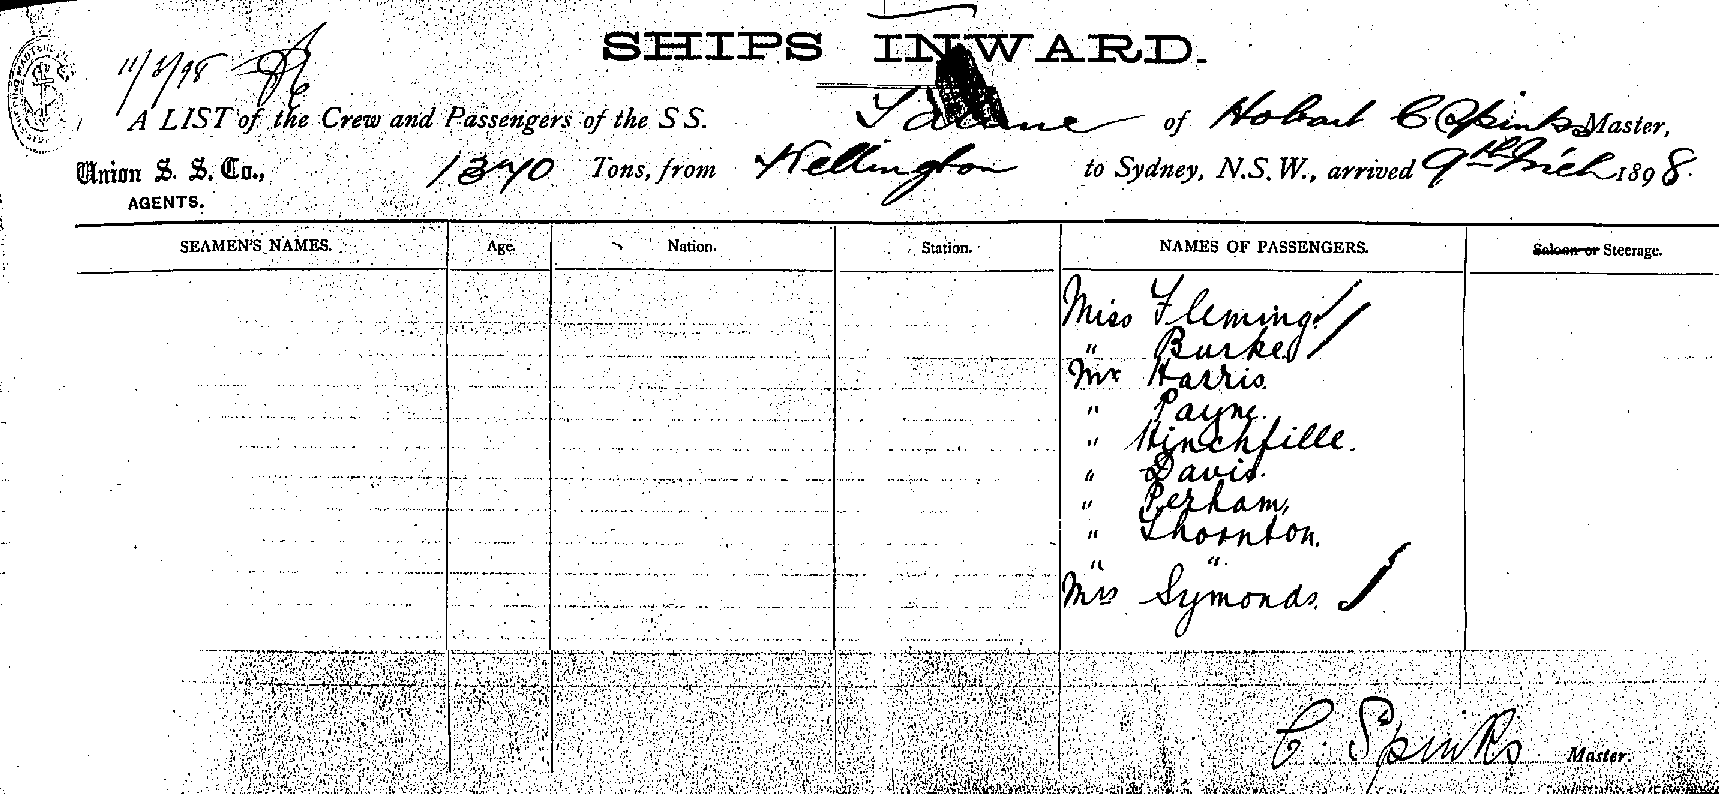 SHIPS INWARD.
11/3/98
A LIST of the Crew and Passengers of the SS. Talune of Hobart C Spinks Master,
Union S. S. Co., 1370 Tons, from Wellington to Sydney, N.S.W., arrived 9th Mch 1898.
AGENTS.
SEAMEN'S NAMES. Age. Nation. Station. NAMES OF PASSENGERS. Saloon or Steerage.
Miss Fleming
" Burke
Mr Harris.
" Payne.
" Hinchfille.
" Davis.
" Perham,
" Thornton.
" "
Mrs Symonds.
C. Spinks Master.